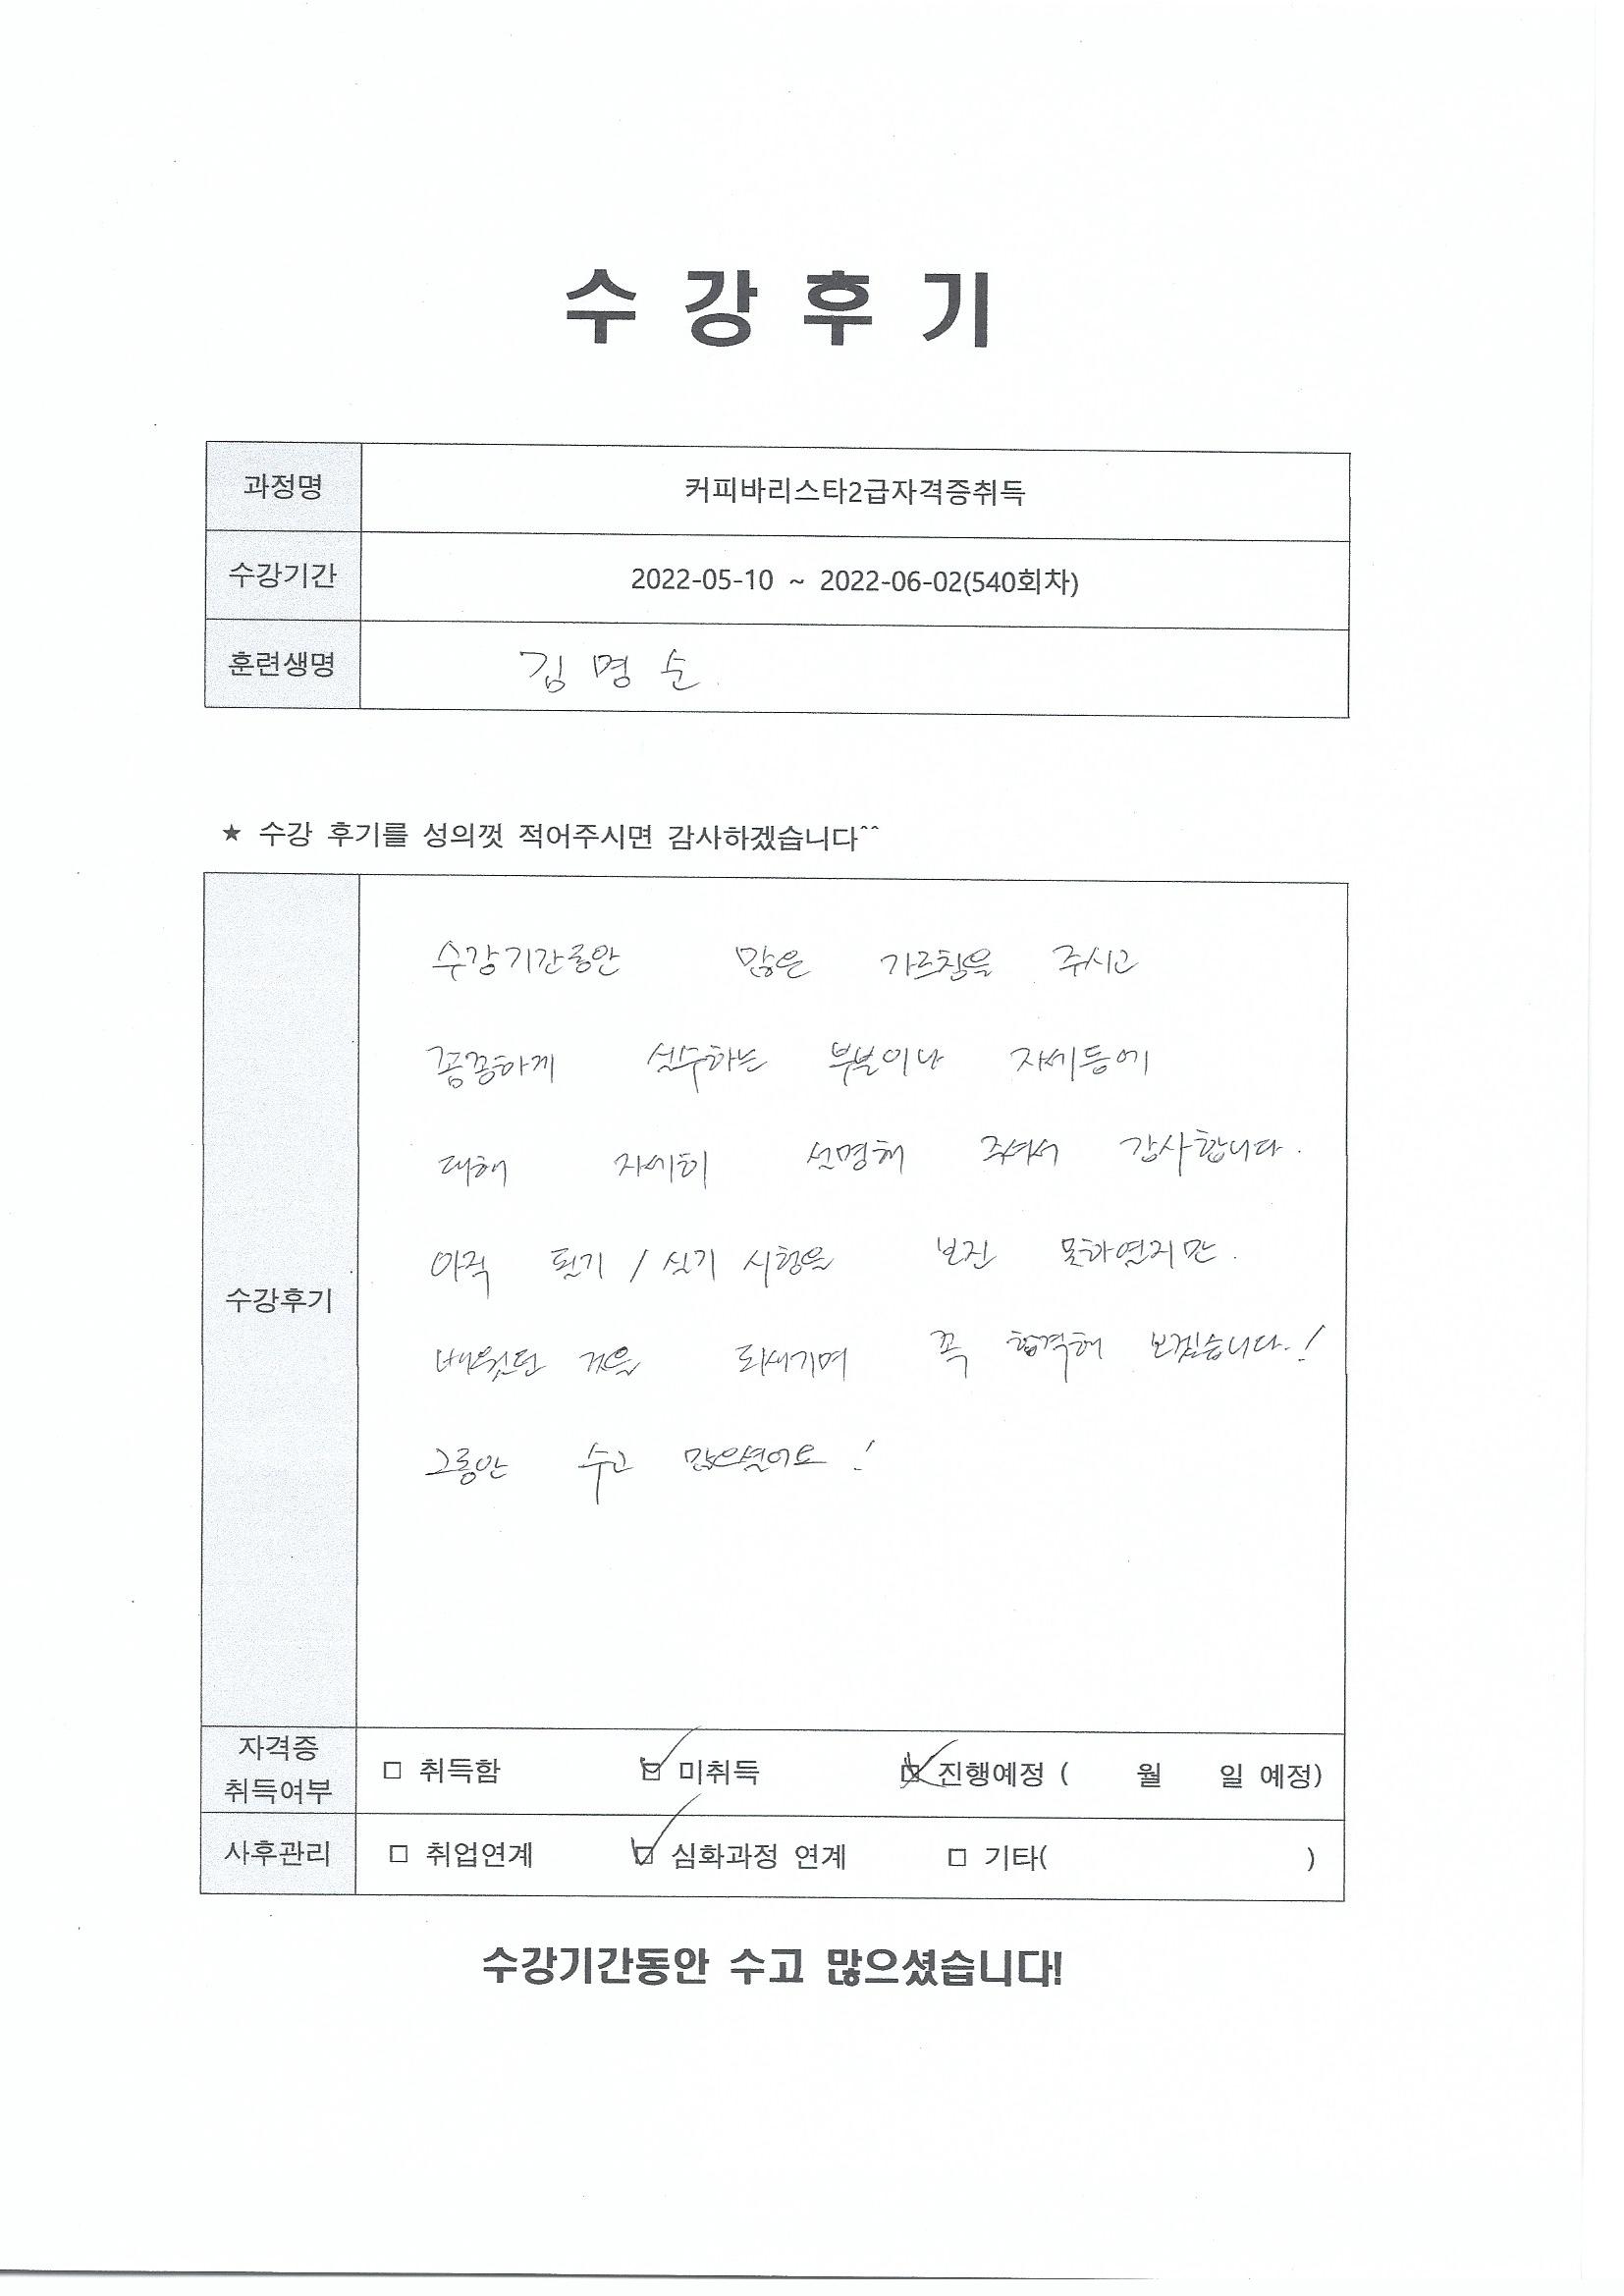 수강후기
과정명 커피바리스타2급자격증취득
수강기간 2022-05-10 ~ 2022-06-02(540회차)
훈련생명 김명순
★ 수강 후기를 성의껏 적어주시면 감사하겠습니다^^
수강기간동안 많은 가르침을 주시고
꼼꼼하게 실수하는 부분이나 자세등에
대해 자세히 설명해 주셔서 감사합니다.
아직 필기 / 실기 시험을 보진 못하였지만.
수강후기
배웠던 것을 되새기며 꼭 합격해 보겠습니다.!
그동안 수고 많으셨어요!
자격증
취득여부
□ 취득함 ☑ 미취득 ☑ 진행예정 ( 월 일 예정)
사후관리 □ 취업연계 ☑ 심화과정 연계 □ 기타( )
수강기간동안 수고 많으셨습니다!